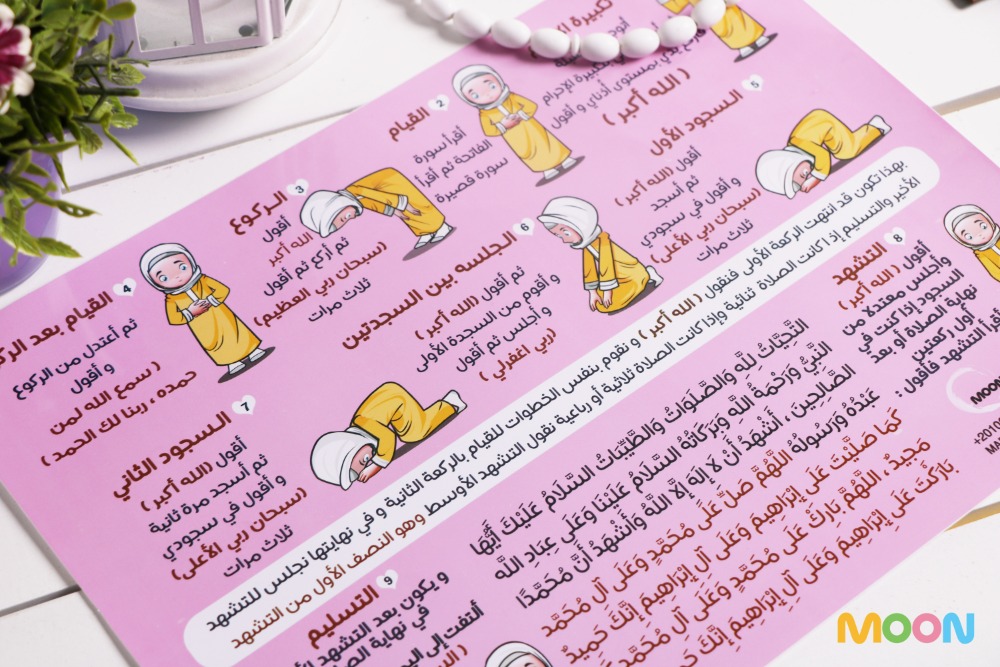 تكبيرة
بمستوى أذناي و أقول
تكبيرة الإحرام
( الله أكبر )
2
القيام
أقرأ سورة
الفاتحة ثم أقرأ
سورة قصيرة
3
الـركوع
أقول
الله أكبر
ثم أركع ثم أقول
(سبحان ربي العظيم)
ثلاث مرات
4
القيام بعد
ثم أعتدل من الركوع
و أقول
( سمع الله لمن
حمده ، ربنا لك الحمد )
5
الـسجود الأول
أقول (الله أكبر)
ثم أسجد
و أقول في سجودي
(سبحان ربي الأعلى)
ثلاث مرات
6
الجلسه بين السجدتين
ثم أقول (الله أكبر)
و أقوم من السجدة الأولى
و أجلس ثم أقول
(ربي اغفرلي)
7
الـسجود الثاني
أقول (الله أكبر)
ثم أسجد مرة ثانية
و أقول في سجودي
(سبحان ربي الأعلى)
ثلاث مرات
بهذا تكون قد انتهت الركعة الأولى فنقول ( الله أكبر ) و نقوم بنفس الخطوات للقيام بالركعة الثانية و في نهايتها نجلس للتشهد
الأخير والتسليم إذ اكانت الصلاة ثنائية وإذا كانت الصلاة ثلاثية أو رباعية نقول التشهد الأوسط وهو النصف الأول من التشهد
8
التشهد
أقول (الله أكبر)
وأجلس معتدلا من
السجود إذا كنت في
نهاية الصلاة أو بعد
أول ركعتين
التشهد فأقول :
التَّحِيَّاتُ لِلَّهِ وَالصَّلَوَاتُ وَالطَّيِّبَاتُ السَّلَامُ عَلَيْكَ أَيُّهَا
النَّبِيُّ وَرَحْمَةُ اللَّهِ وَبَرَكَاتُهُ السَّلَامُ عَلَيْنَا وَعَلَى عِبَادِ اللَّهِ
الصَّالِحِينَ ، أَشْهَدُ أَنْ لَا إِلَهَ إِلَّا اللَّهُ وَأَشْهَدُ أَنَّ مُحَمَّدًا
عَبْدُهُ وَرَسُولُهُ اللَّهُمَّ صَلِّ عَلَى مُحَمَّدٍ وَعَلَى آلِ مُحَمَّدٍ
كَمَا صَلَّيْتَ عَلَى إِبْرَاهِيمَ وَعَلَى آلِ إِبْرَاهِيمَ إِنَّكَ حَمِيدٌ
مَجِيدٌ ، اللَّهُمَّ بَارِكْ عَلَى مُحَمَّدٍ وَعَلَى آلِ مُحَمَّدٍ
بَارَكْتَ عَلَى إِبْرَاهِيمَ وَعَلَى آلِ إِبْرَاهِيمَ إِنَّكَ
9
التسليم
و يكون بعد التشهد
في نهاية
ألتفت إلى
MOON
+2010
MOON